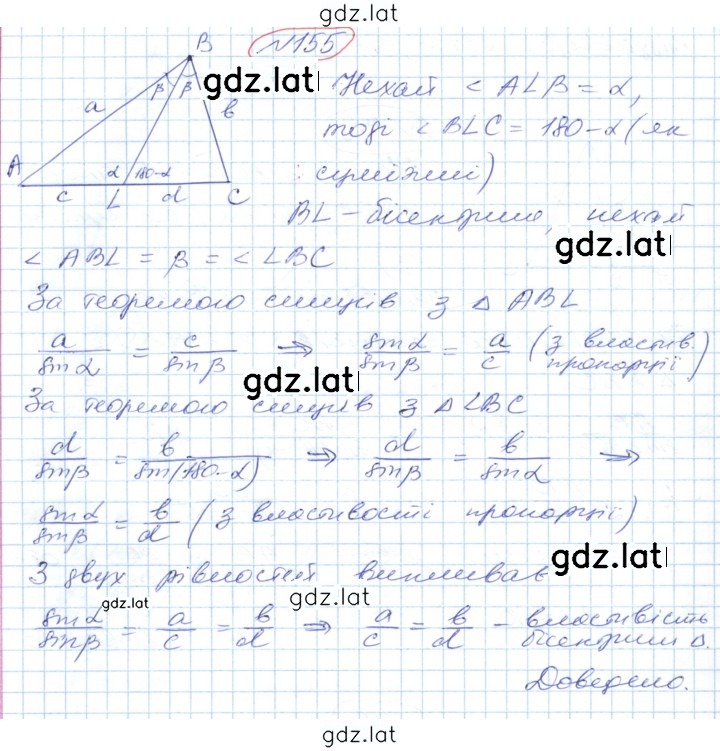 gdz.lat
№155
B
gdz.lat
β β
a
b
A
α 180-α
c L d C
Нехай ∠ALB = α,
тоді ∠BLC = 180-α (як
суміжні)
BL - бісектриса, нехай
gdz.lat
∠ABL = β = ∠LBC
За теоремою синусів з △ABL
a/sinα = c/sinβ ⇒ sinα/sinβ = a/c (з властив.
пропорції)
gdz.lat
За теоремою синусів з △LBC
d/sinβ = b/sin(180-α) ⇒ d/sinβ = b/sinα ⇒
sinα/sinβ = b/d (з властивості пропорції)
gdz.lat
З двух рівностей випливає
gdz.lat
gdz.lat
sinα/sinβ = a/c = b/d ⇒ a/c = b/d - властивість
бісектриси △.
Доведено.
gdz.lat